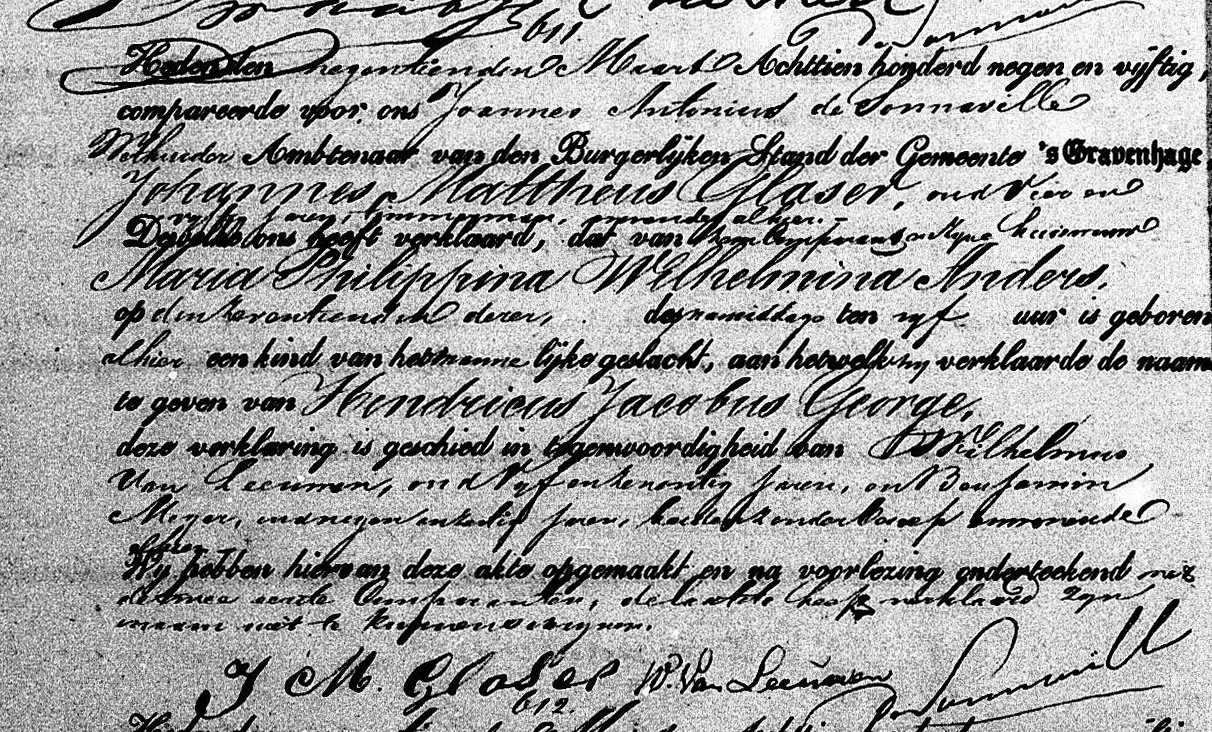 611.
Heden den negentienden Maart Achttien honderd negen en vijftig,
compareerde voor ons Joannes Antonius de Sonnaville
Wethouder Ambtenaar van den Burgerlijken Stand der Gemeente 's Gravenhage,
Johannes Mattheus Glaser, oud Vier en
jaren, timmerman, wonende alhier.
Dewelke ons heeft verklaard, dat van hem Comparant en zijne huisvrouw
Maria Philippina Wilhelmina Anders.
op den zeventienden dezer, des namiddags ten vijf uur is geboren
alhier een kind van het manne lijke geslacht, aan hetwelk hij verklaarde de naam
te geven van Hendricus Jacobus George,
deze verklaring is geschied in tegenwoordigheid van Wilhelmus
Van Leeuwen, oud Vijf en twintig jaren, en Benjamin
Meyer, oud negen en zestig jaren, beiden zonder beroep wonende
alhier.
Wij hebben hiervan deze akte opgemaakt en na voorlezing onderteekend met
de twee eerste Comparanten, de laatste heeft verklaard zijn
naam niet te kunnen
J M. Glaser W. Van Leeuwen de Sonnaville
612.